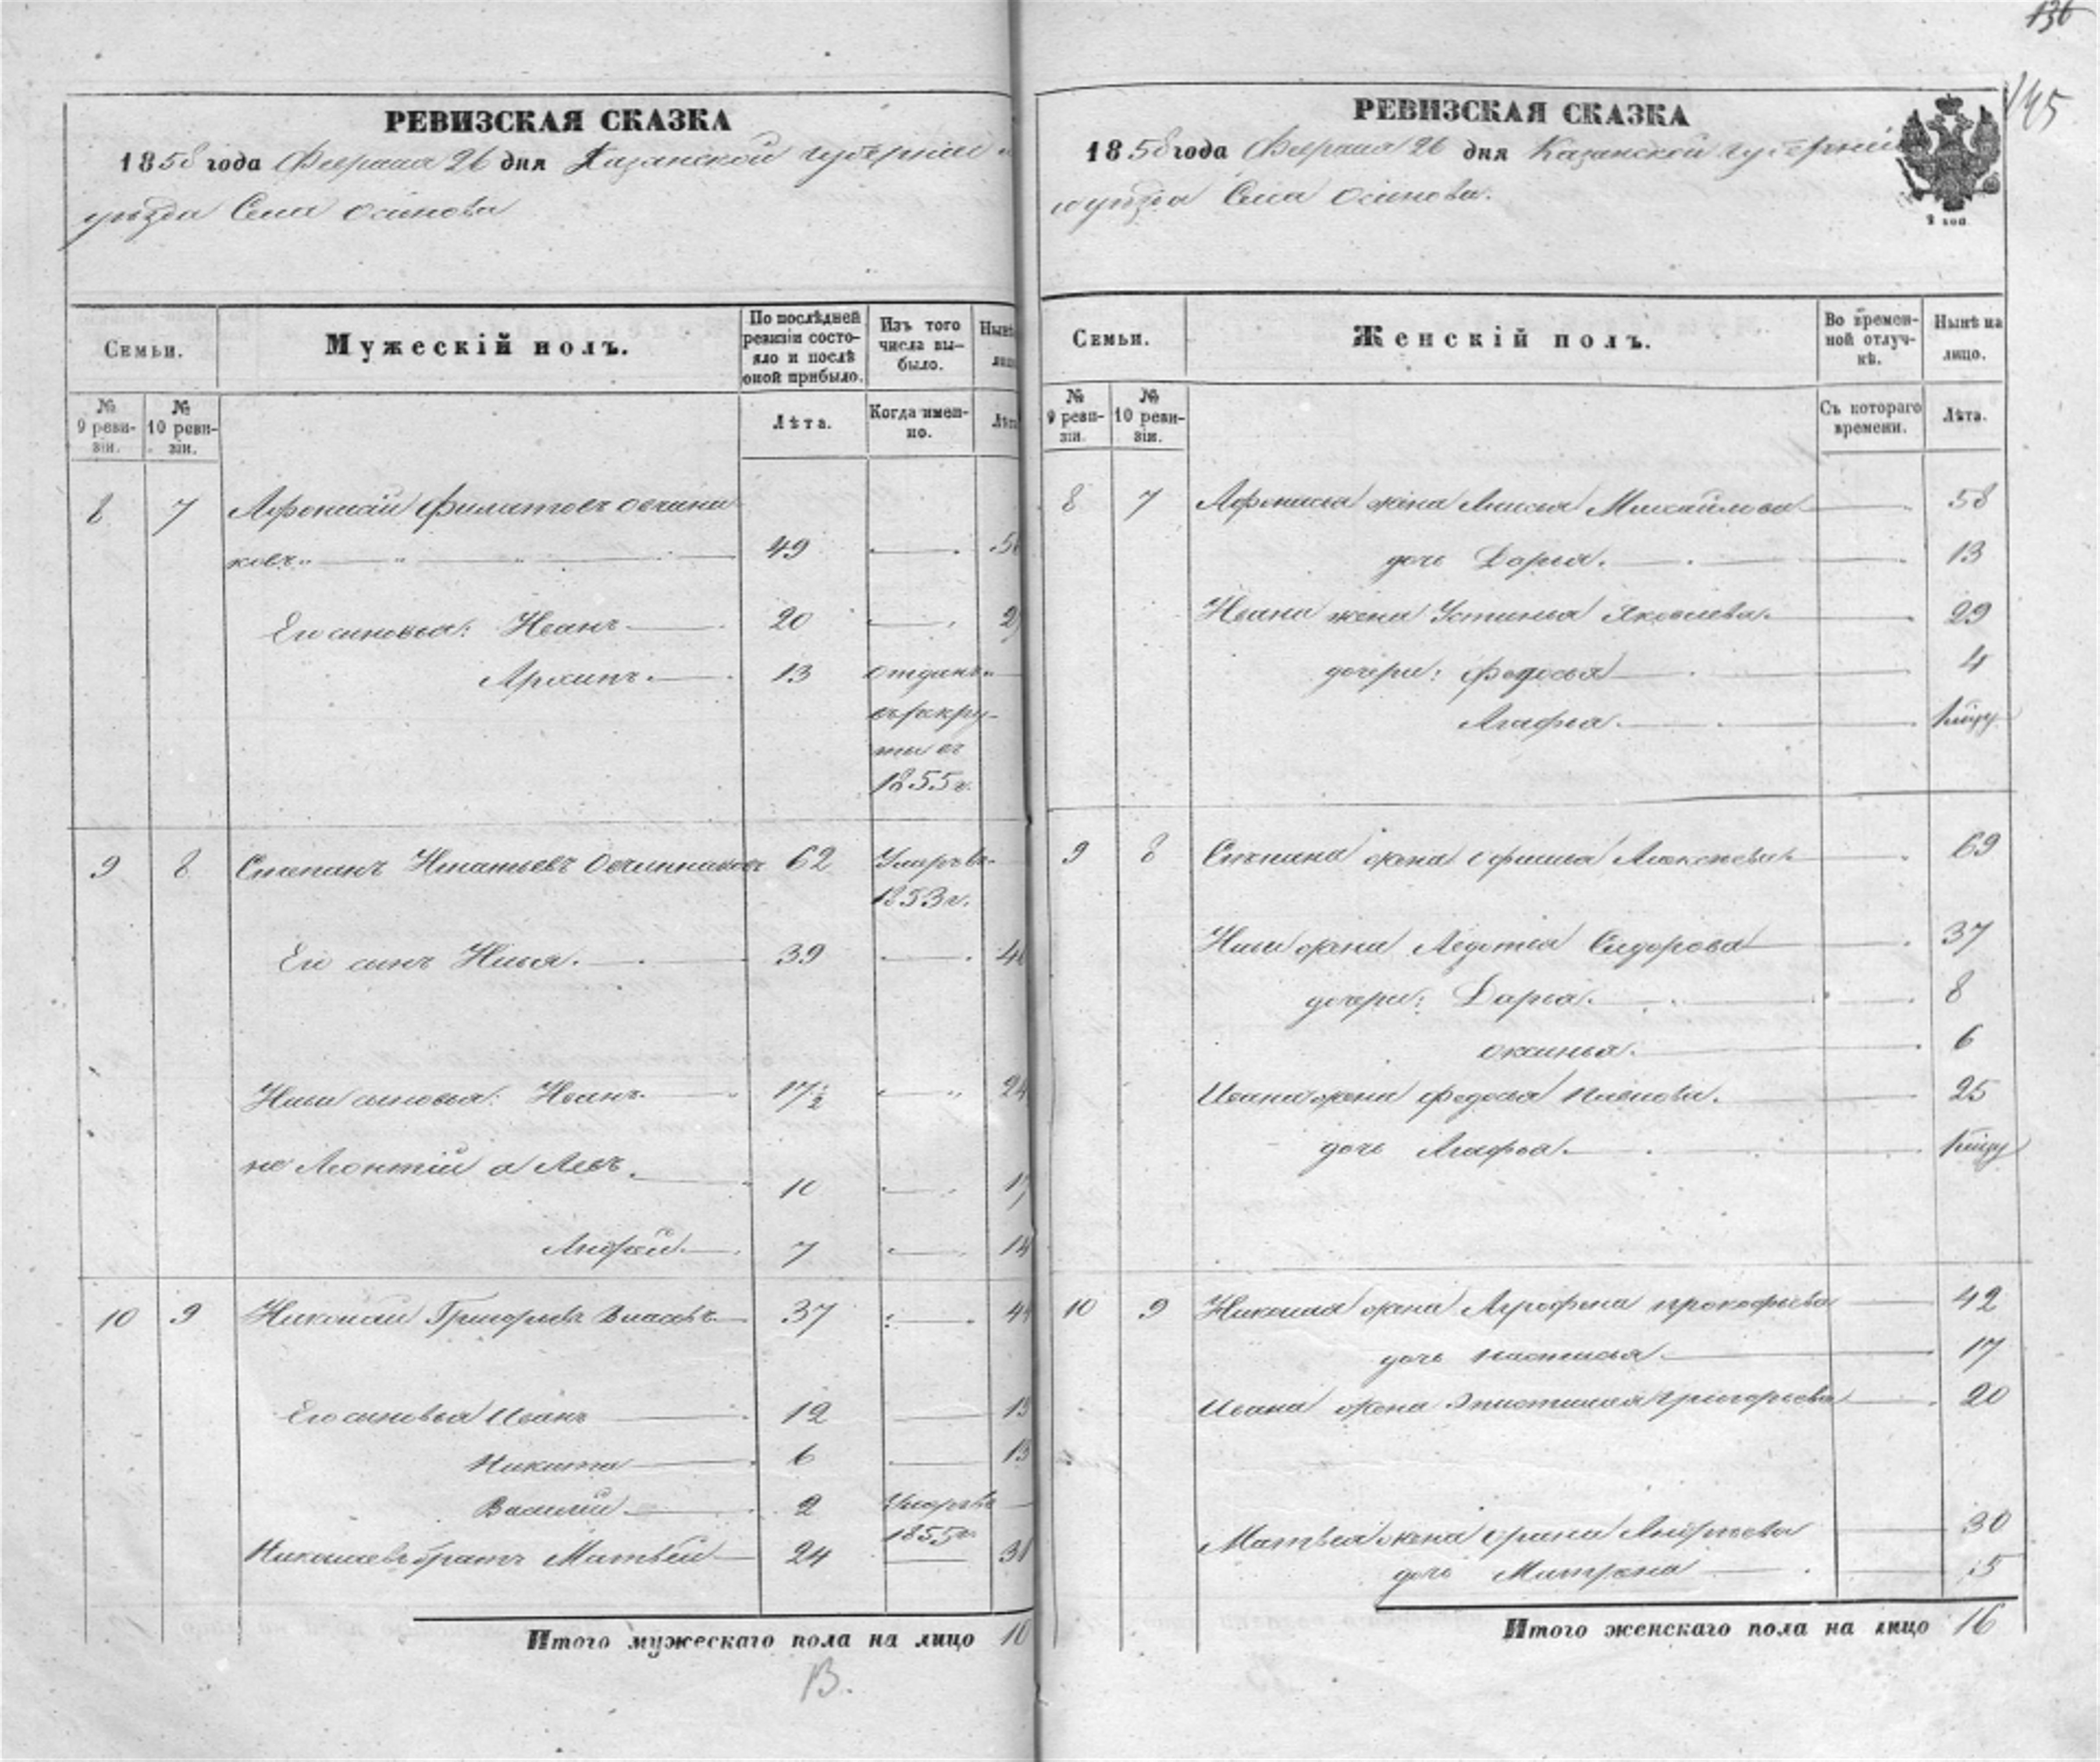 136
145
РЕВИЗСКАЯ СКАЗКА
1858 года Февраля 26 дня Казанской губернии и
уезда Села Осинова
Семьи.
Мужескій полъ.
По послѣдней ревизіи состояло и послѣ оной прибыло.
Изъ того числа выбыло.
Нынѣ
лицо
№ 9 ревизіи.
№ 10 ревизіи.
Лѣта.
Когда именно.
Лѣта
8 7 Афонасій Филатовъ Овчинни
ковъ 49
Его сыновья: Иванъ 20
Архипъ. 13 отданъ
въ рекру-
ты въ
1855 г.
9 8 Степанъ Игнатьевъ Овчинниковъ 62 Умръ въ
1853 г.
Его сынъ Илья. 39
Ильи сыновья: Иванъ 17 1/2 24
не Леонтій а Левъ. 10 17
Андрей 7 14
10 9 Николай Григорьевъ Власовъ 37
Его сыновья Иванъ 12
Никита 6 13
Василій 2 Умръ въ
1855 г.
Николаевъ братъ Матвѣй 24
Итого мужескаго пола на лицо 10
В.
РЕВИЗСКАЯ СКАЗКА
1858 года Февраля 26 дня Казанской губерніи
и уезда Села Осинова.
2 коп
Семьи.
Женскій полъ.
Во временной отлучкѣ.
Нынѣ на лицо.
№ 9 ревизіи.
№ 10 ревизіи.
Съ котораго времени.
Лѣта.
8 7 Афонасья жена Анисья Михайлова 58
дочь Дарья. 13
Ивана жена Устинья Яковлева. 29
дочери: Федосья 4
Агафья. 1 году
9 8 Степана жена Офимья Алексѣева 69
Ильи жена Авдотья Сидорова 37
дочери: Дарья. 8
Оксинья. 6
Ивана жена Федосья 25
дочь Агафья. 1 году
10 9 Николая жена Агрофена Прокофьева 42
дочь Настасья 17
Ивана жена Григорьева 20
Матвѣя жена Орина Андрѣева 30
дочь Матрена 5
Итого женскаго пола на лицо 16